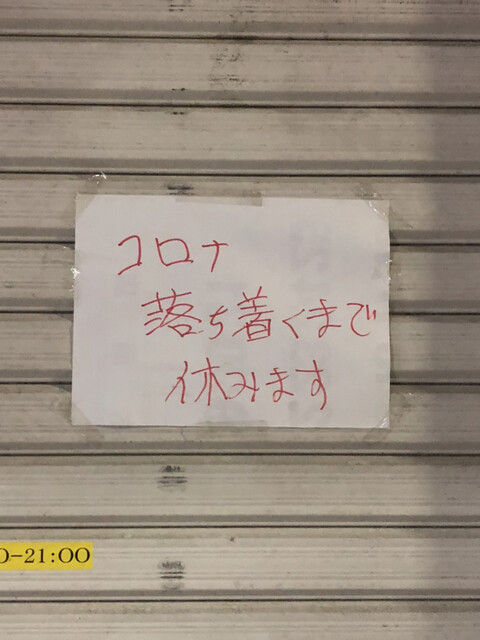 コロナ
落ち着くまで
休みます
0-21:00